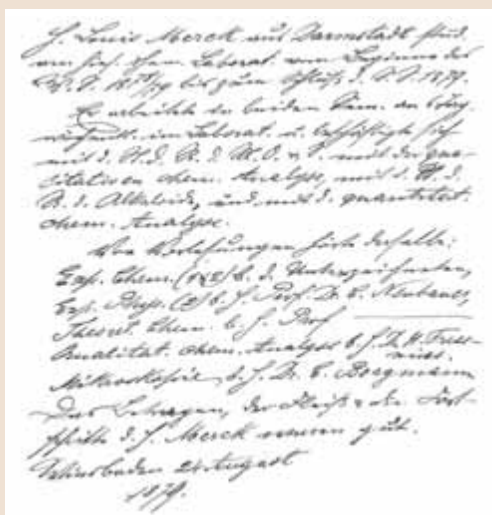 H. Louis Merck aus Darmstadt stud.
am hies. chem. Laborat. vom Beginne des
W. S. 1878/79 bis zum Schluß d. S. S. 1879.
Er arbeitete in beiden Sem. an Tag.
wöchentl. im Laborat. u. beschäftigte sich
mit d. St. d. R. d. M. O. u. S. mit der qua-
litativen chem. Analyse, mit d. St. d.
R. d. Alkaloide, und mit d. quantitat.
chem. Analyse.
Von Vorlesungen hörte derselbe:
Exp. Chem. (1&2) b. d. Unterzeichneten,
Exp. Phys. (2) b. H. Prof. Dr. C. Neubauer,
Theoret. Chem. b. H. Prof
Qualitat. chem. Analyse b. H. Dr. H. Frese-
nius.
Mikroskopie b. H. Dr. E. Borgmann
Das Betragen, der Fleiß u. die Fort-
schritte d. H. Merck waren gut.
Wiesbaden 24 August
1879.